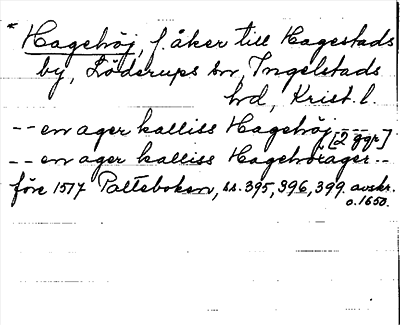 * Hagehöj, f. åker till Hagestads
by, Löderups sn, Ingelstads
hd, Krist. l.
-- en ager kalliss Hagehöj -- [2 ggr]
-- en ager kalliss Hagehörager --
före 1517 Palteboken, ss. 395, 396, 399. avskr.
o. 1650.